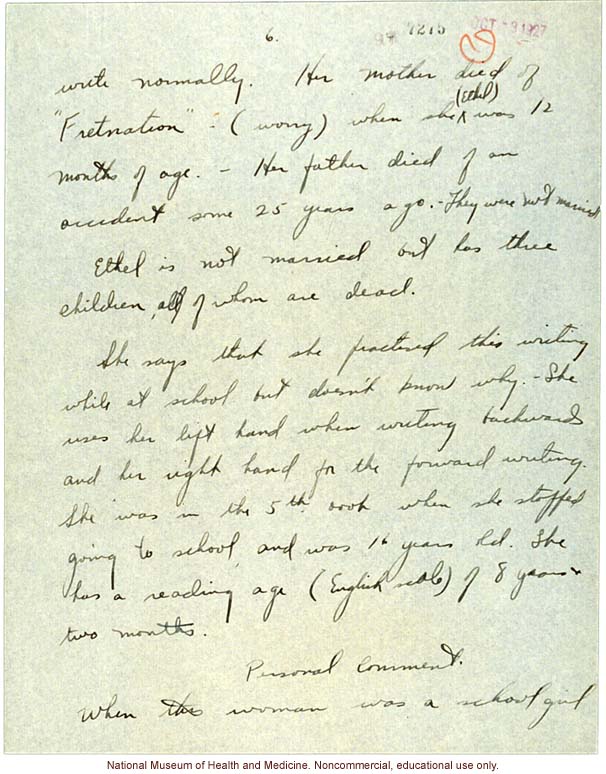 6.
7215
OCT -3 1927
write normally. Her mother died of
"Fretnation" - (worry) when she (Ethel) was 12
months of age. - Her father died of an
accident some 25 years ago. - They were not married
Ethel is not married but has three
children, all of whom are dead.
She says that she practised this writing
while at school but doesn't know why. - She
uses her left hand when writing backwards
and her right hand for the forward writing.
She was in the 5th book when she stopped
going to school, and was 16 years old. She
has a reading age (English scale) of 8 years +
two months.
Personal Comment.
When this woman was a school girl
National Museum of Health and Medicine. Noncommercial, educational use only.